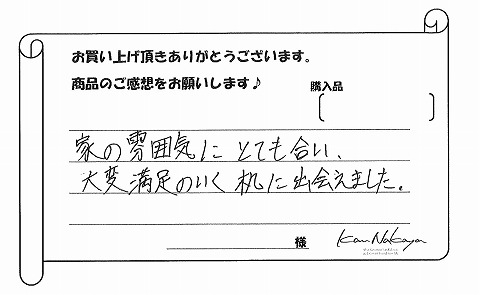 お買い上げ頂きありがとうございます。
商品のご感想をお願いします♪
購入品
家の雰囲気にとても合い、
大変満足のいく机に出会えました。
様
Kan Nakaya